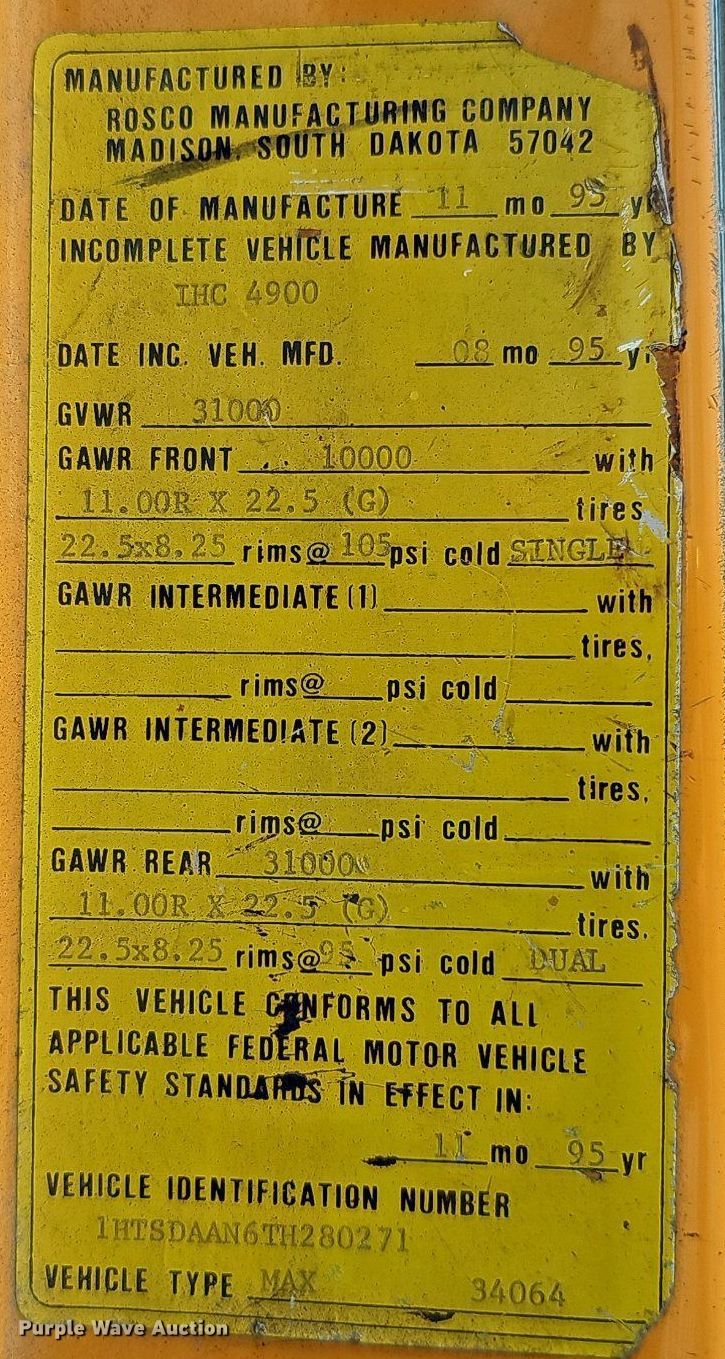 MANUFACTURED BY:
ROSCO MANUFACTURING COMPANY
MADISON, SOUTH DAKOTA 57042
DATE OF MANUFACTURE 11 mo 95 yr
INCOMPLETE VEHICLE MANUFACTURED BY
IHC 4900
DATE INC. VEH. MFD. 08 mo 95 yr
GVWR 31000
GAWR FRONT 10000 with
11.00R X 22.5 (G) tires
22.5x8.25 rims@ 105 psi cold SINGLE
GAWR INTERMEDIATE (1) with
tires,
rims@ psi cold
GAWR INTERMEDIATE (2) with
tires,
rims@ psi cold
GAWR REAR 31000 with
11.00R X 22.5 (G) tires.
22.5x8.25 rims@ 95 psi cold DUAL
THIS VEHICLE CONFORMS TO ALL
APPLICABLE FEDERAL MOTOR VEHICLE
SAFETY STANDARDS IN EFFECT IN:
11 mo 95 yr
VEHICLE IDENTIFICATION NUMBER
1HTSDAAN6TH280271
VEHICLE TYPE MAX 34064
Purple Wave Auction